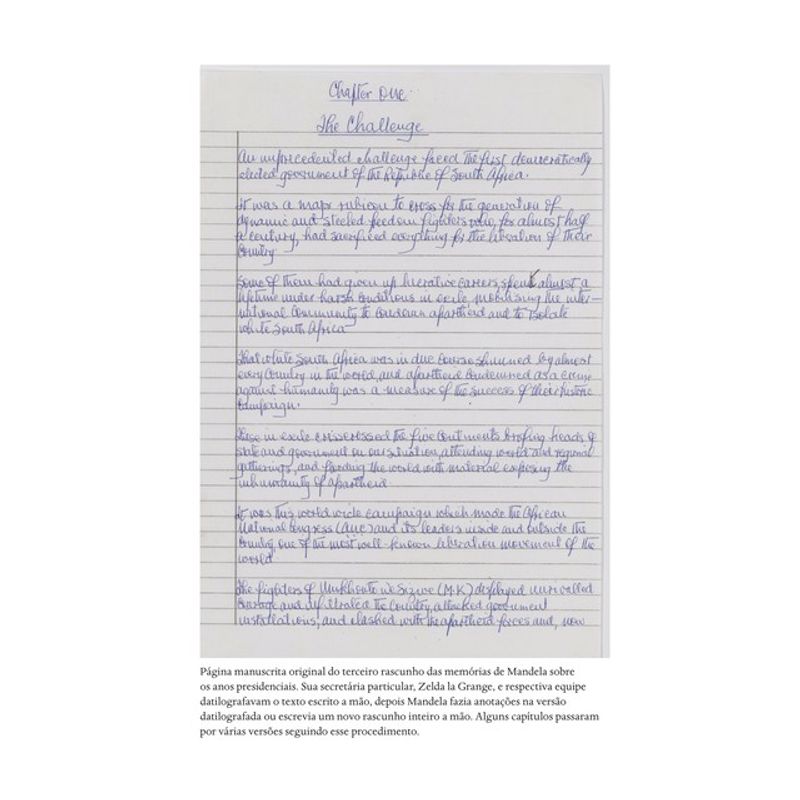 Chapter One.
The Challenge
An unprecedented challenge faced the first democratically
elected government of the Republic of South Africa.
It was a major rubicon to cross for the generation of
dynamic and steeled freedom fighters who, for almost half
a century, had sacrificed everything for the liberation of their
country
Some of them had given up lucrative careers, spent almost a
lifetime under harsh conditions in exile, mobilising the inter-
national community to condemn apartheid and to isolate
white South Africa
That white South Africa was in due course shunned by almost
every country in the world, and apartheid condemned as a crime
against humanity was a measure of the success of their historic
campaign.
Those in exile crisscrossed the five continents briefing heads of
state and government on our situation, attending world and regional
gatherings, and flooding the world with material exposing the
inhumanity of apartheid
It was this world wide campaign which made the African
National Congress (ANC) and its leaders inside and outside the
country, one of the most well-known liberation movement of the
world
The fighters of Umkhonto we Sizwe (M.K) displayed unrivalled
courage and infiltrated the country, attacked government
installations, and clashed with the apartheid forces and, now
Página manuscrita original do terceiro rascunho das memórias de Mandela sobre
os anos presidenciais. Sua secretária particular, Zelda la Grange, e respectiva equipe
datilografavam o texto escrito a mão, depois Mandela fazia anotações na versão
datilografada ou escrevia um novo rascunho inteiro a mão. Alguns capítulos passaram
por várias versões seguindo esse procedimento.